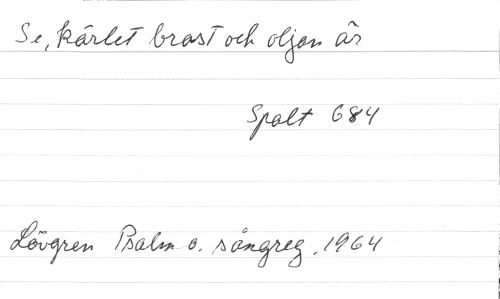 Se, kärlet brast och oljan är
Spalt 684
Lövgren Psalm o. sångreg. 1964